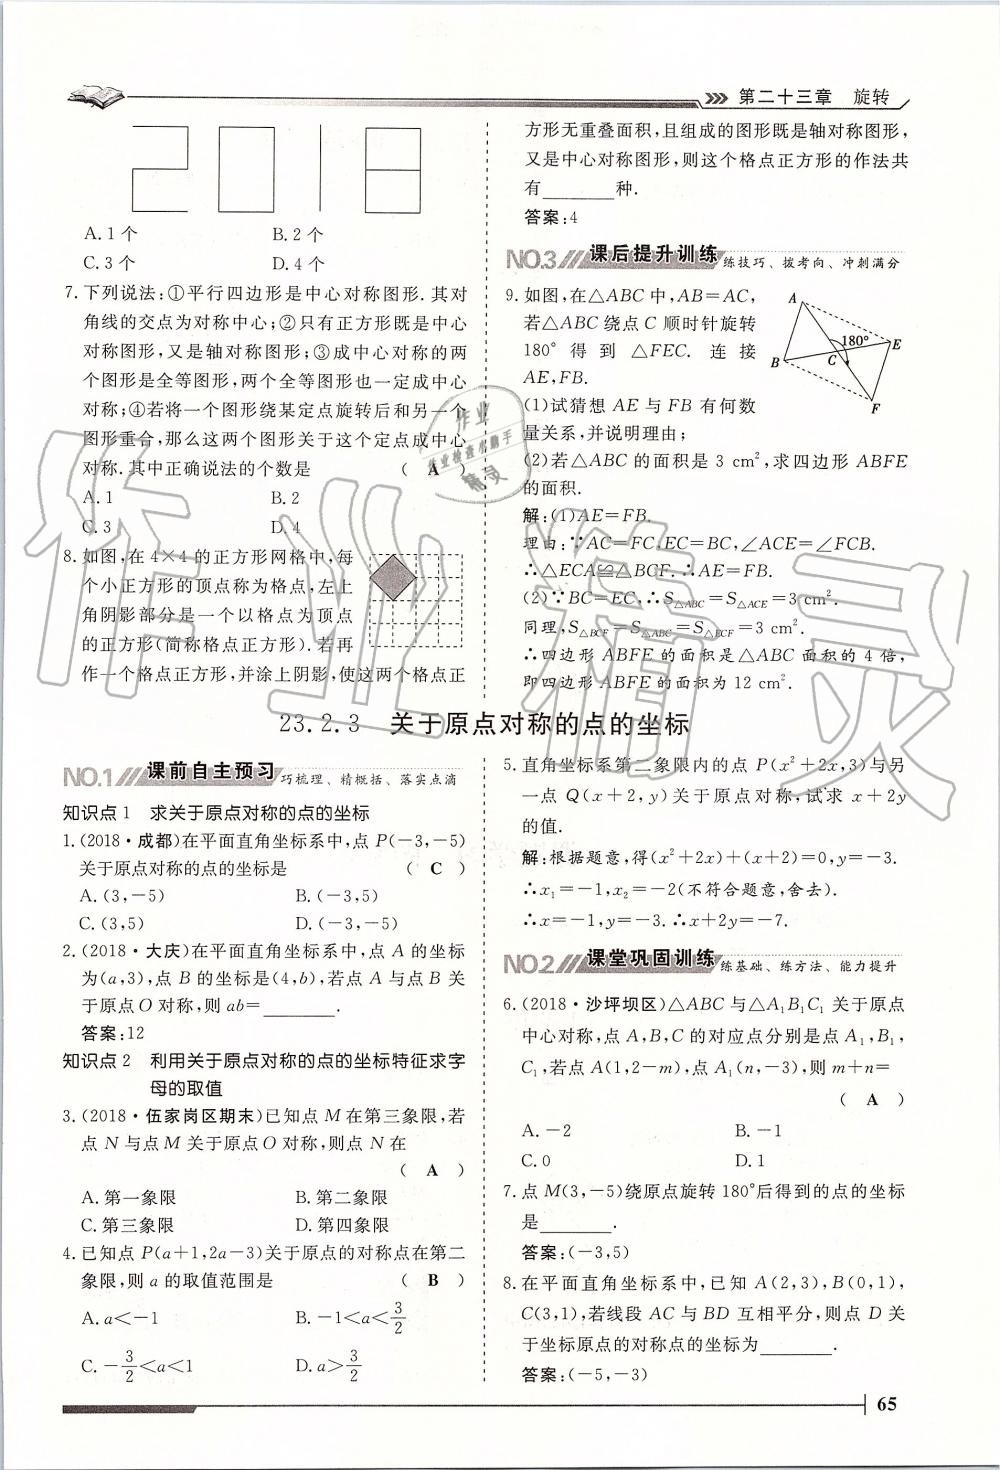 第二十三章 旋转
2018
A.1 个 B.2 个
C.3 个 D.4 个
7.下列说法:①平行四边形是中心对称图形.其对
角线的交点为对称中心;②只有正方形既是中心
对称图形,又是轴对称图形;③成中心对称的两
个图形是全等图形,两个全等图形也一定成中心
对称;④若将一个图形绕某定点旋转后和另一个
图形重合,那么这两个图形关于这个定点成中心
对称.其中正确说法的个数是 ( A )
A.1 B.2
C.3 D.4
8.如图,在 4×4 的正方形网格中,每
个小正方形的顶点称为格点,左上
角阴影部分是一个以格点为顶点
的正方形(简称格点正方形).若再
作一个格点正方形,并涂上阴影,使这两个格点正
方形无重叠面积,且组成的图形既是轴对称图形,
又是中心对称图形,则这个格点正方形的作法共
有________种.
答案:4
NO.3 课后提升训练 练技巧、拔考向、冲刺满分
9.如图,在△ABC 中,AB=AC,
若△ABC 绕点 C 顺时针旋转
180° 得到 △FEC. 连接
AE,FB.
A
180°
E
B
C
F
(1)试猜想 AE 与 FB 有何数
量关系,并说明理由;
(2)若△ABC 的面积是 3 cm²,求四边形 ABFE
的面积.
解:(1)AE=FB.
理由:∵AC=FC,EC=BC,∠ACE=∠FCB.
∴△ECA≌△BCF.∴AE=FB.
(2)∵BC=EC,∴S△ABC=S△ACE=3 cm².
同理,S△BCF=S△ABC=S△ECF=3 cm².
∴四边形 ABFE 的面积是△ABC 面积的 4 倍,
即四边形 ABFE 的面积为 12 cm².
23.2.3 关于原点对称的点的坐标
NO.1 课前自主预习 巧梳理、精概括、落实点滴
知识点 1 求关于原点对称的点的坐标
1.(2018·成都)在平面直角坐标系中,点 P(-3,-5)
关于原点对称的点的坐标是 ( C )
A.(3,-5) B.(-3,5)
C.(3,5) D.(-3,-5)
2.(2018·大庆)在平面直角坐标系中,点 A 的坐标
为(a,3),点 B 的坐标是(4,b),若点 A 与点 B 关
于原点 O 对称,则 ab=________.
答案:12
知识点 2 利用关于原点对称的点的坐标特征求字
母的取值
3.(2018·伍家岗区期末)已知点 M 在第三象限,若
点 N 与点 M 关于原点 O 对称,则点 N 在
( A )
A.第一象限 B.第二象限
C.第三象限 D.第四象限
4.已知点 P(a+1,2a-3)关于原点的对称点在第二
象限,则 a 的取值范围是 ( B )
A.a<-1 B.-1<a<3/2
C.-3/2<a<1 D.a>3/2
5.直角坐标系第二象限内的点 P(x²+2x,3)与另
一点 Q(x+2,y)关于原点对称,试求 x+2y
的值.
解:根据题意,得(x²+2x)+(x+2)=0,y=-3.
∴x₁=-1,x₂=-2(不符合题意,舍去).
∴x=-1,y=-3.∴x+2y=-7.
NO.2 课堂巩固训练 练基础、练方法、能力提升
6.(2018·沙坪坝区)△ABC 与△A₁B₁C₁ 关于原点
中心对称,点 A,B,C 的对应点分别是点 A₁,B₁,
C₁,若点 A(1,2-m),点 A₁(n,-3),则 m+n=
( A )
A.-2 B.-1
C.0 D.1
7.点 M(3,-5)绕原点旋转 180°后得到的点的坐标
是________.
答案:(-3,5)
8.在平面直角坐标系中,已知 A(2,3),B(0,1),
C(3,1),若线段 AC 与 BD 互相平分,则点 D 关
于坐标原点的对称点的坐标为________.
答案:(-5,-3)
65
作业精灵
作业
作业检查小助手
精灵